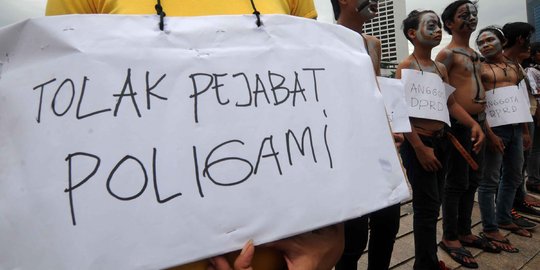 TOLAK PEJABAT
POLIGAMI
ANGGOTA
DPRD
ANGGOTA
DPRD